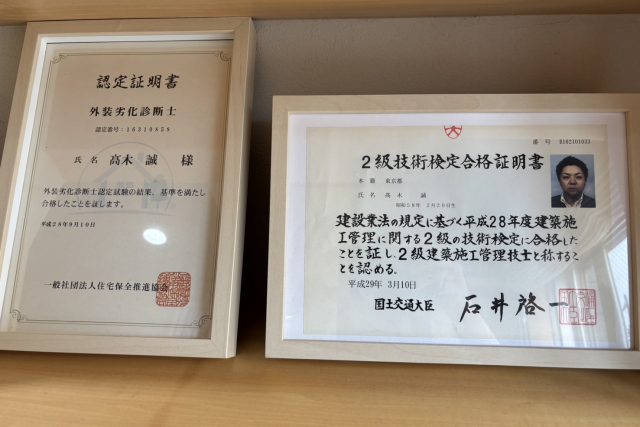 認定証明書
外装劣化診断士
認定番号:16210858
氏名 髙木 誠 様
外装劣化診断士認定試験の結果、基準を満たし
合格したことを証します。
平成28年9月10日
一般社団法人住宅保全推進協会
番号 B162101033
2級技術検定合格証明書
本籍 東京都
氏名 髙木 誠
昭和58年 2月20日生
建設業法の規定に基づく平成28年度建築施
工管理に関する2級の技術検定に合格した
ことを証し、2級建築施工管理技士と称するこ
とを認める。
平成29年 3月10日
国土交通大臣 石井啓一